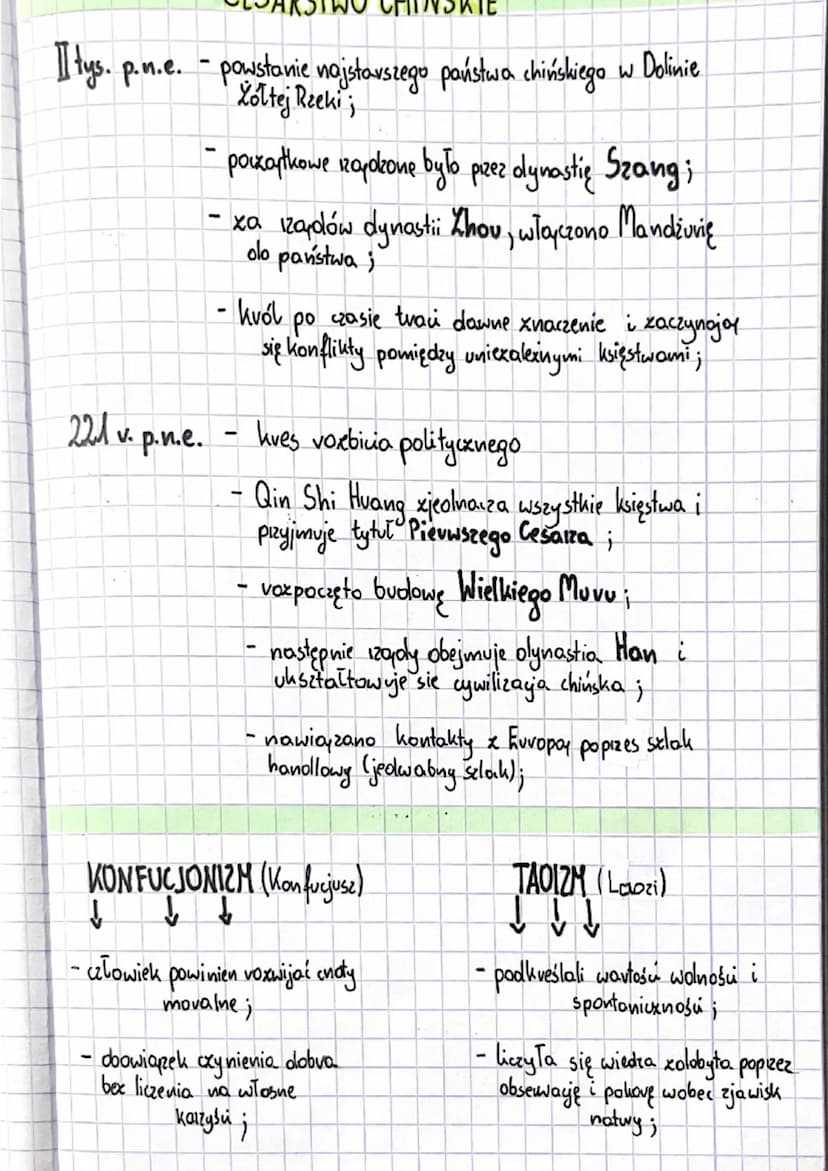 CESARSTWO CHIŃSKIE
II tys. p.n.e. - powstanie najstarszego państwa chińskiego w Dolinie
Żółtej Rzeki;
- początkowe rządzone było przez dynastię Szang;
- za rządów dynastii Zhou, włączono Mandżurię
do państwa;
- król po czasie traci dawne znaczenie i zaczynają
się konflikty pomiędzy uniezależnymi księstwami;
221 r. p.n.e. - kres rozbicia politycznego
- Qin Shi Huang zjednacza wszystkie księstwa i
przyjmuje tytuł Pierwszego Cesarza;
- rozpoczęto budowę Wielkiego Muru;
- następnie rządy obejmuje dynastia Han i
ukształtowuje się cywilizacja chińska;
- nawiązano kontakty z Europą poprzes szlak
handlowy (jedwabny szlak);
KONFUCJONIZM (Konfucjusz) TAOIZM (Laozi)
- człowiek powinien rozwijać cnoty
moralne;
- obowiązek czynienia dobra
bez liczenia na własne
korzyści;
- podkreślali wartości wolności i
spontoniczności;
- liczyła się wiedza zdobyta poprzez
obserwację i pokorę wobec zjawisk
natury;